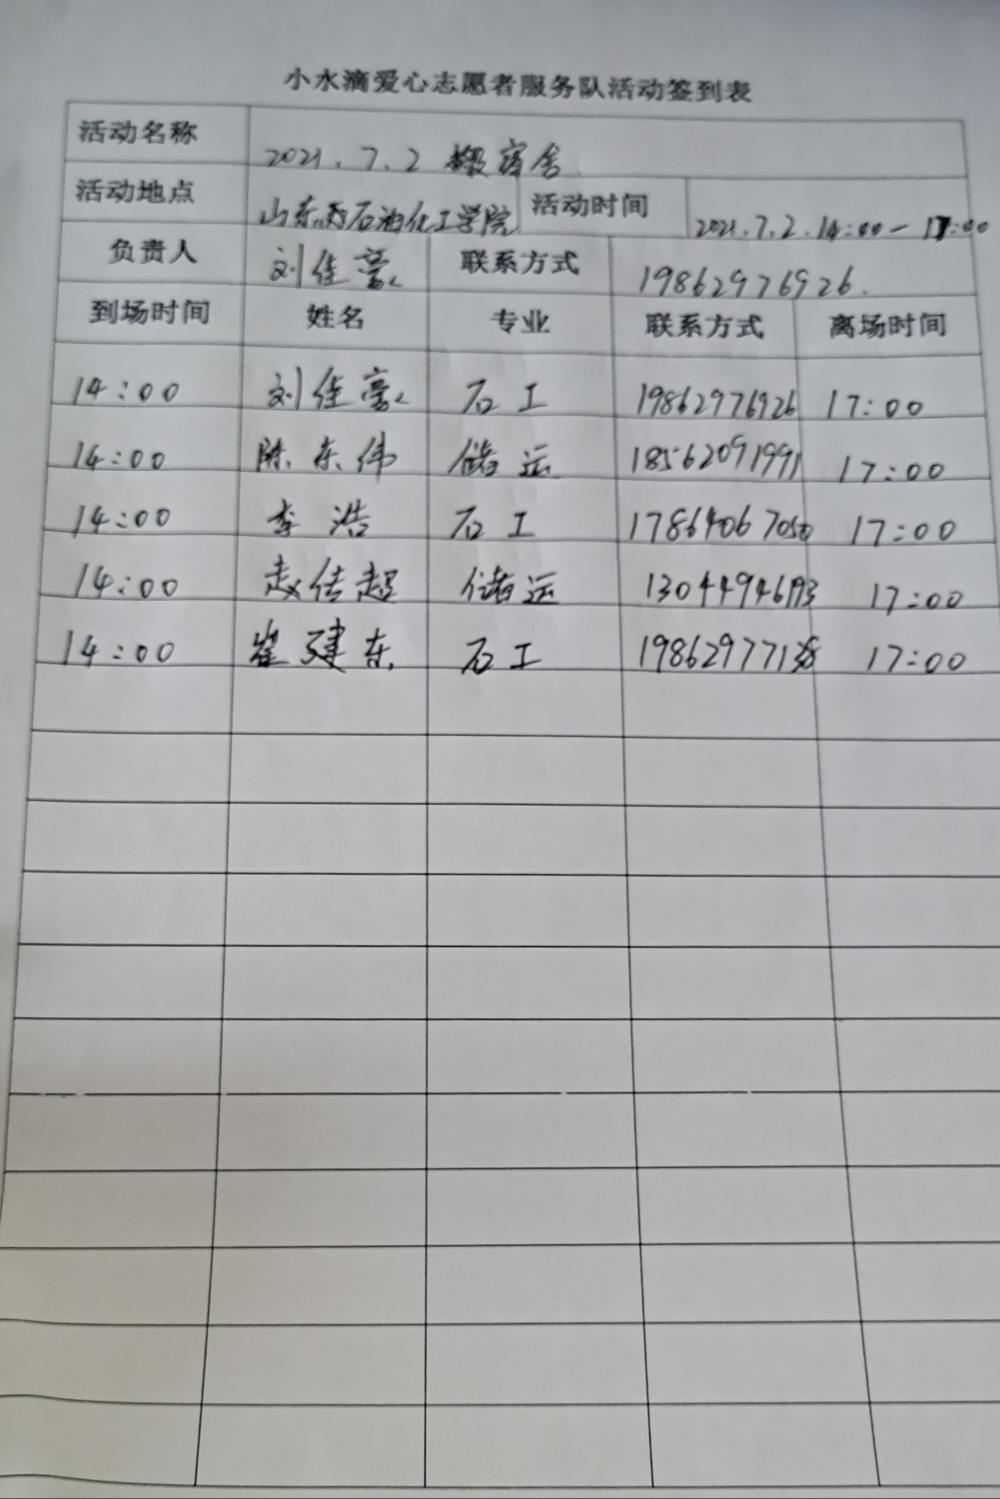 小水滴爱心志愿者服务队活动签到表
活动名称 2021.7.2 搬宿舍
活动地点 山东石油化工学院 活动时间 2021.7.2.14:00-17:00
负责人 刘佳豪 联系方式 19862976926.
到场时间 姓名 专业 联系方式 离场时间
14:00 刘佳豪 石工 19862976926 17:00
14:00 陈东伟 储运 18562091991 17:00
14:00 李浩 石工 17864067050 17:00
14:00 赵传超 储运 17:00
14:00 崔建东 石工 17:00